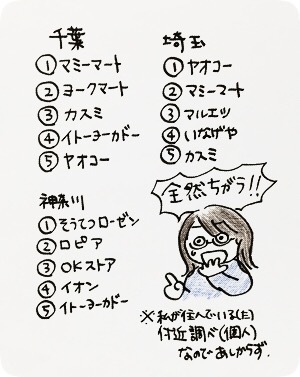 千葉
①マミーマート
②ヨークマート
③カスミ
④イトーヨーカドー
⑤ヤオコー
埼玉
①ヤオコー
②マミーマート
③マルエツ
④いなげや
⑤カスミ
神奈川
①そうてつローゼン
②ロピア
③OKストア
④イオン
⑤イトーヨーカドー
全然ちがう!!
※私が住んでいる(た)
付近調べ(個人)
なのであしからず.